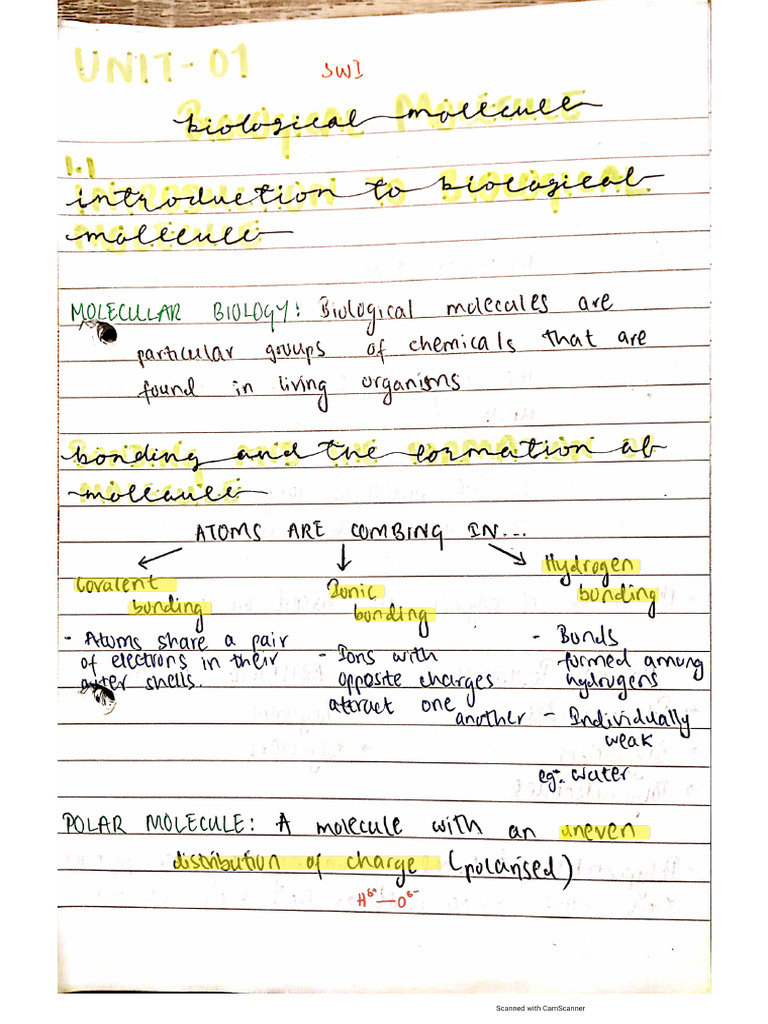 UNIT-01
SWI
Biological Molecule
1.1
introduction to biological
molecule
MOLECULAR BIOLOGY: Biological molecules are
particular groups of chemicals that are
found in living organisms
bonding and the formation of
molecule
ATOMS ARE COMBING IN...
Covalent bonding
- Atoms share a pair
of electrons in their
outer shells.
Ionic bonding
- Ions with
opposite charges
attract one
another
Hydrogen bonding
- Bonds
formed among
hydrogens
- Individually
weak
eg:- water
POLAR MOLECULE: A molecule with an uneven
distribution of charge (polarised)
Hδ+—Oδ-
Scanned with CamScanner